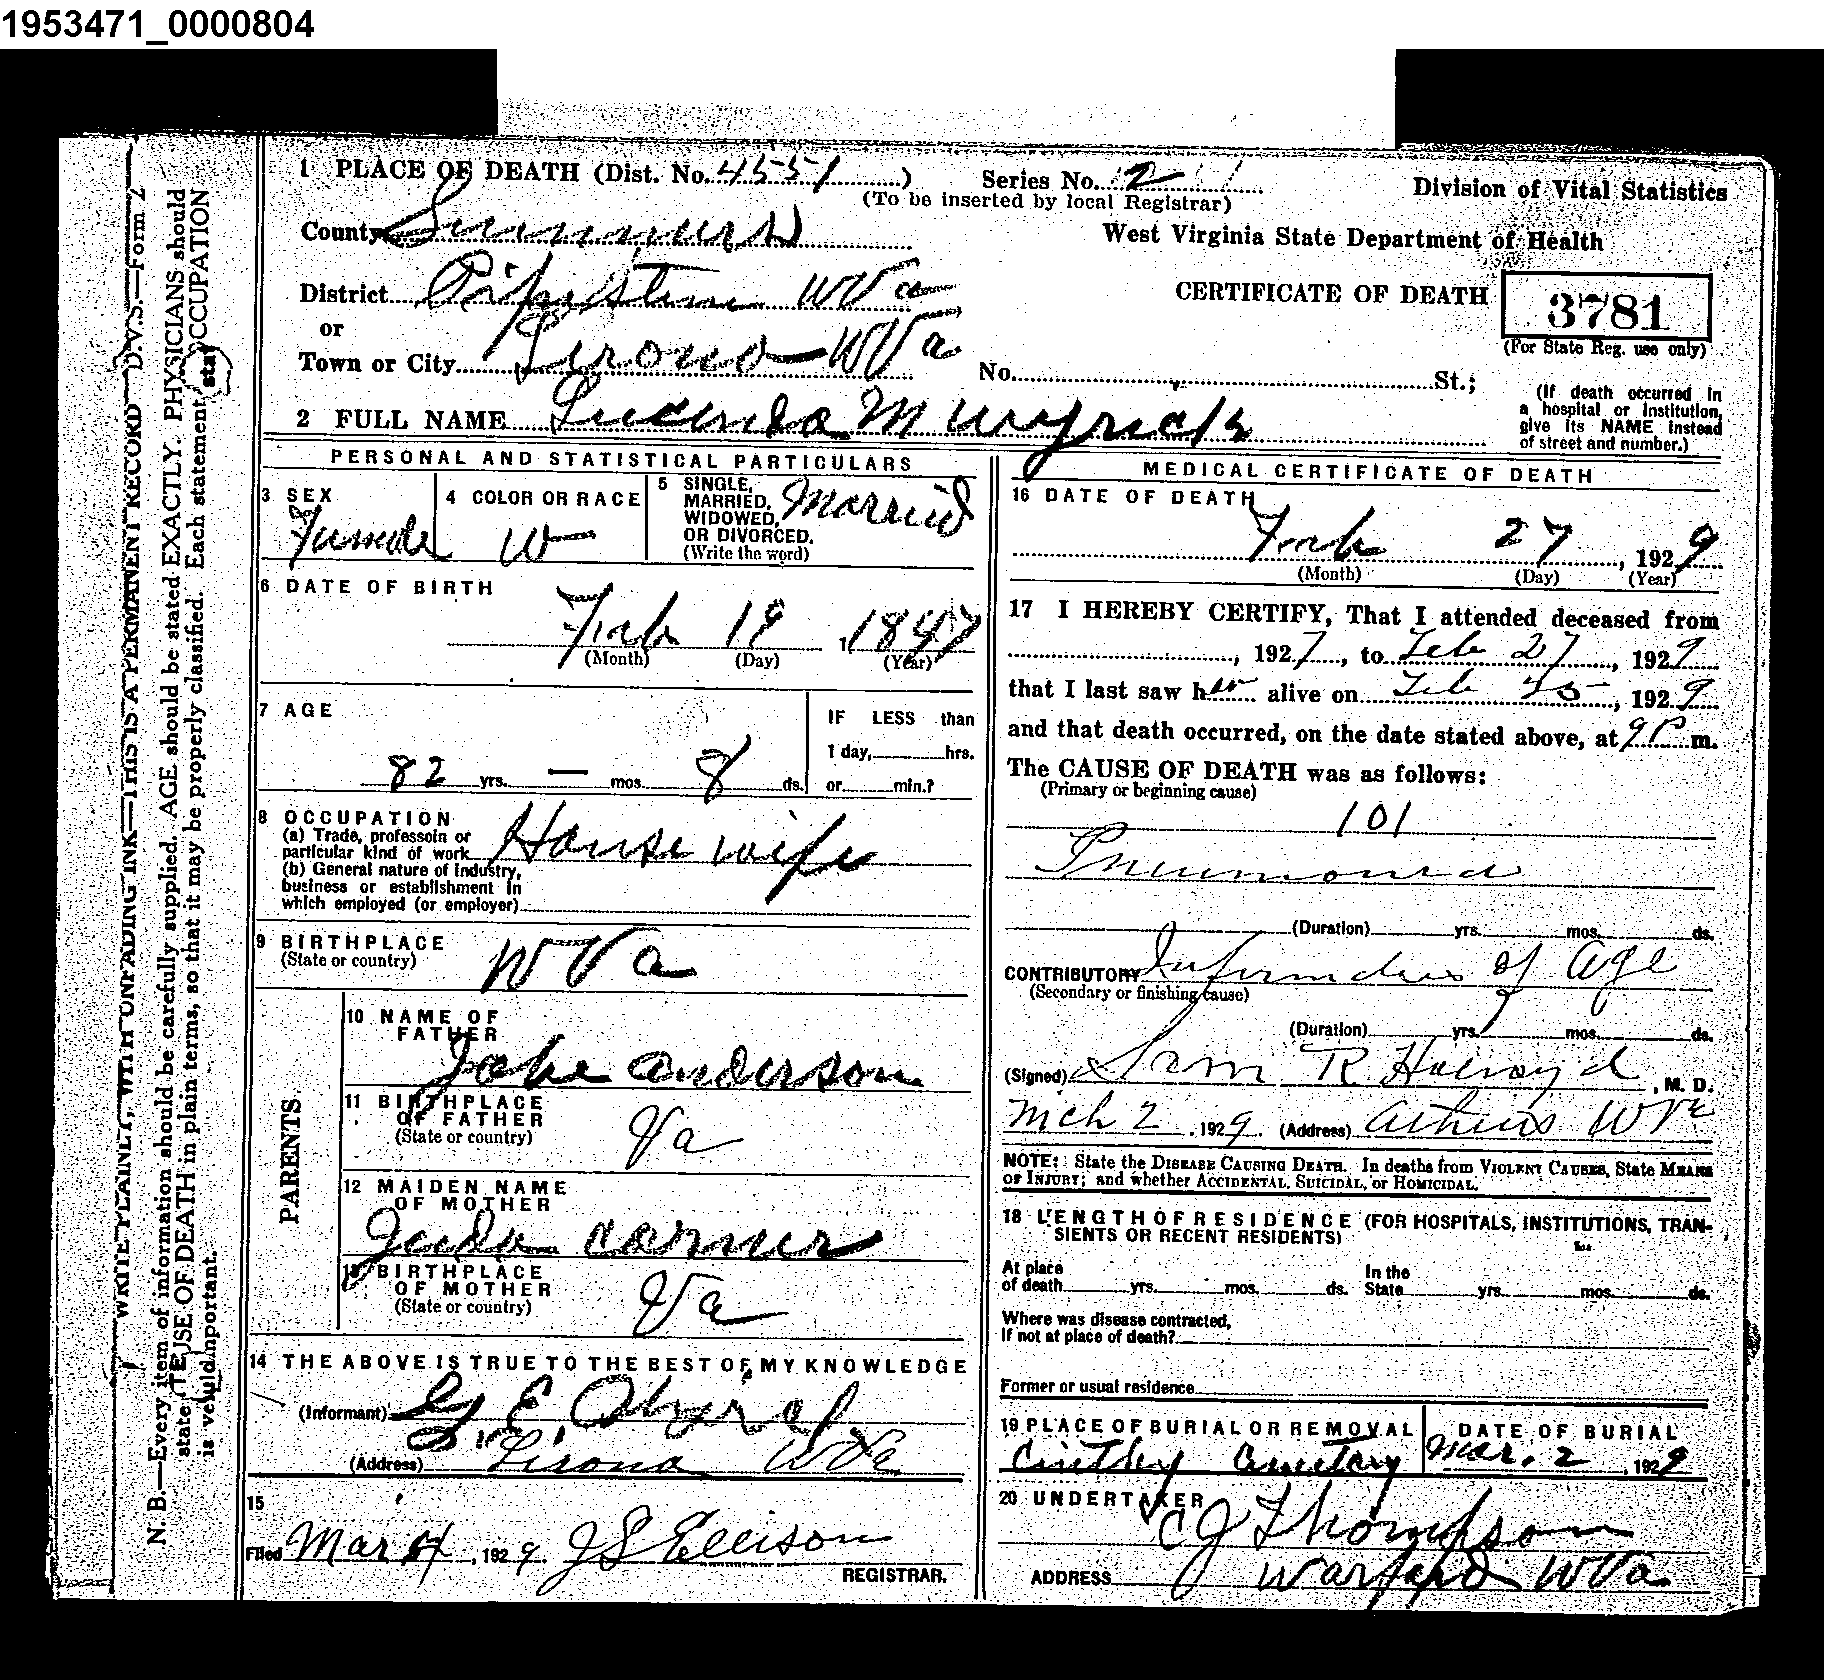 1953471_0000804
1 PLACE OF DEATH (Dist. No. 4551 ) Series No. 2 Division of Vital Statistics
(To be inserted by local Registrar)
County Summers West Virginia State Department of Health
District Pipestem W Va CERTIFICATE OF DEATH 3781
or
Town or City W Va (For State Reg. use only)
No. St.; (If death occurred in a hospital or institution, give its NAME instead of street and number.)
2 FULL NAME Lucinda M
PERSONAL AND STATISTICAL PARTICULARS
3 SEX Female
4 COLOR OR RACE W
5 SINGLE, MARRIED, WIDOWED, OR DIVORCED. (Write the word) Married
6 DATE OF BIRTH
Feb 19, 1847
(Month) (Day) (Year)
7 AGE
82 yrs. — mos. 8 ds.
IF LESS than
1 day, hrs.
or min.?
8 OCCUPATION
(a) Trade, professoin or
particular kind of work House wife
(b) General nature of Industry,
business or establishment in
which employed (or employer)
9 BIRTHPLACE
(State or country) W Va
PARENTS
10 NAME OF FATHER
Jake Anderson
11 BIRTHPLACE OF FATHER
(State or country) Va
12 MAIDEN NAME OF MOTHER
Juda
13 BIRTHPLACE OF MOTHER
(State or country) Va
14 THE ABOVE IS TRUE TO THE BEST OF MY KNOWLEDGE
(Informant) G. E.
(Address) W Va
15
Filed Mar 4, 1929 J S Ellison
REGISTRAR.
MEDICAL CERTIFICATE OF DEATH
16 DATE OF DEATH
Feb 27, 1929
(Month) (Day) (Year)
17 I HEREBY CERTIFY, That I attended deceased from
, 1927, to Feb 27, 1929
that I last saw h alive on Feb , 1929
and that death occurred, on the date stated above, at 9 P m.
The CAUSE OF DEATH was as follows:
(Primary or beginning cause)
101
Pneumonia
(Duration) yrs. mos. ds.
CONTRIBUTORY of Age
(Secondary or finishing cause)
(Duration) yrs. mos. ds.
(Signed) R Holroyd, M. D.
Mch 2, 1929. (Address) Athens W Va
NOTE: State the DISEASE CAUSING DEATH. In deaths from VIOLENT CAUSES, State MEANS
OF INJURY; and whether ACCIDENTAL, SUICIDAL, or HOMICIDAL.
18 LENGTH OF RESIDENCE (FOR HOSPITALS, INSTITUTIONS, TRAN-
SIENTS OR RECENT RESIDENTS)
At place of death yrs. mos. ds. In the State yrs. mos. ds.
Where was disease contracted,
If not at place of death?
Former or usual residence
19 PLACE OF BURIAL OR REMOVAL DATE OF BURIAL
Cemetary Mar. 2, 1929
20 UNDERTAKER
C J Thompson
ADDRESS W Va
WRITE PLAINLY, WITH UNFADING INK—THIS IS A PERMANENT RECORD D.V.S.—Form 2
N. B.—Every item of information should be carefully supplied. AGE should be stated EXACTLY. PHYSICIANS should
state CAUSE OF DEATH in plain terms, so that it may be properly classified. Each statement OCCUPATION
is important.